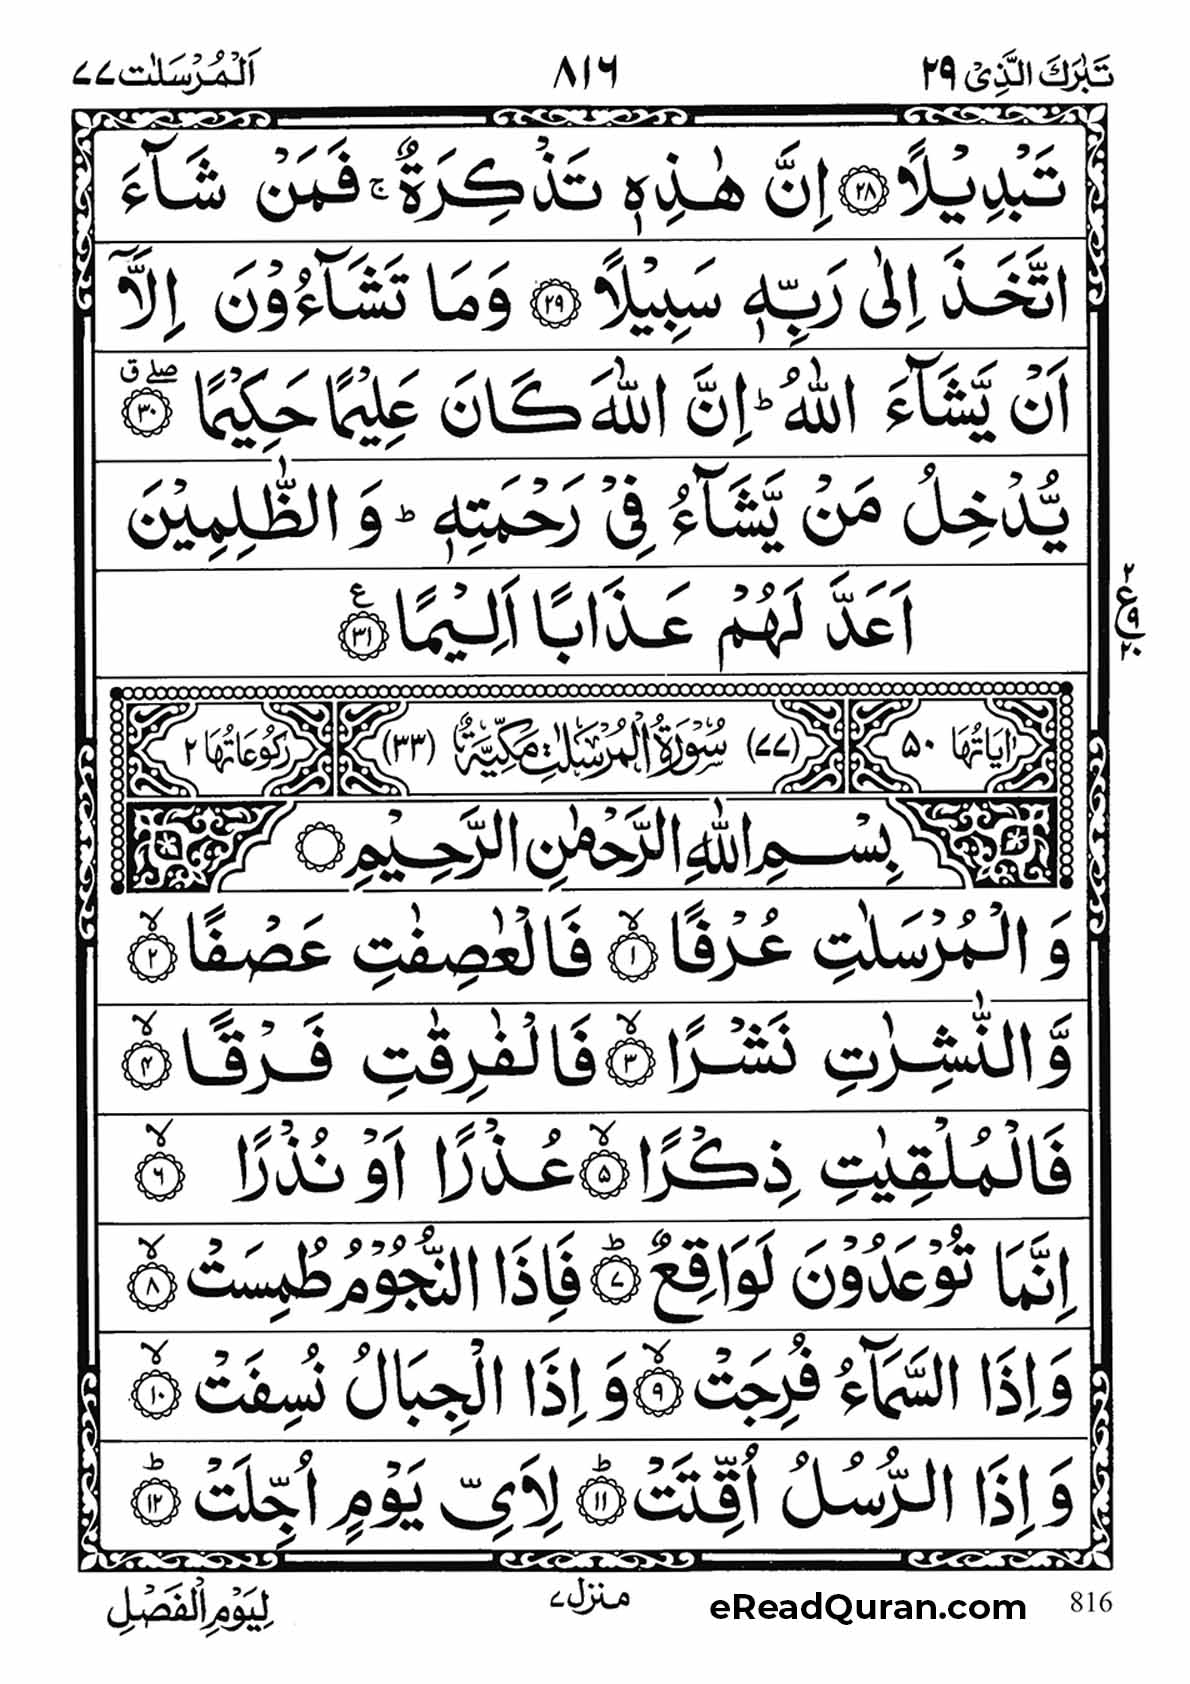 تَبٰرَكَ الَّذِیْ ۲۹ ۸۱۶ اَلْمُرْسَلٰت ۷۷
تَبْدِیْلًا ﴿۲۸﴾ اِنَّ هٰذِهٖ تَذْكِرَةٌ ۚ فَمَنْ شَآءَ
اتَّخَذَ اِلٰی رَبِّهٖ سَبِیْلًا ﴿۲۹﴾ وَمَا تَشَآءُوْنَ اِلَّاۤ
اَنْ یَّشَآءَ اللّٰهُ ؕ اِنَّ اللّٰهَ كَانَ عَلِیْمًا حَكِیْمًا ﴿۳۰﴾ ۖق
یُّدْخِلُ مَنْ یَّشَآءُ فِیْ رَحْمَتِهٖ ؕ وَ الظّٰلِمِیْنَ
اَعَدَّ لَهُمْ عَذَابًا اَلِیْمًا ﴿۳۱﴾ ع
۲ ع ۹ ۲۰
اٰیَاتُهَا ۵۰ (۷۷) سُوْرَةُ الْمُرْسَلٰتِ مَكِّیَّةٌ (۳۳) رُكُوْعَاتُهَا ۲
بِسْمِ اللّٰهِ الرَّحْمٰنِ الرَّحِیْمِ
وَ الْمُرْسَلٰتِ عُرْفًا ﴿۱﴾ ۙ فَالْعٰصِفٰتِ عَصْفًا ﴿۲﴾ ۙ
وَّ النّٰشِرٰتِ نَشْرًا ﴿۳﴾ ۙ فَالْفٰرِقٰتِ فَرْقًا ﴿۴﴾ ۙ
فَالْمُلْقِیٰتِ ذِكْرًا ﴿۵﴾ ۙ عُذْرًا اَوْ نُذْرًا ﴿۶﴾ ۙ
اِنَّمَا تُوْعَدُوْنَ لَوَاقِعٌ ﴿۷﴾ ؕ فَاِذَا النُّجُوْمُ طُمِسَتْ ﴿۸﴾ ۙ
وَ اِذَا السَّمَآءُ فُرِجَتْ ﴿۹﴾ ۙ وَ اِذَا الْجِبَالُ نُسِفَتْ ﴿۱۰﴾ ۙ
وَ اِذَا الرُّسُلُ اُقِّتَتْ ﴿۱۱﴾ ؕ لِاَیِّ یَوْمٍ اُجِّلَتْ ﴿۱۲﴾ ؕ
لِیَوْمِ الْفَصْلِ منزل ۷ eReadQuran.com 816